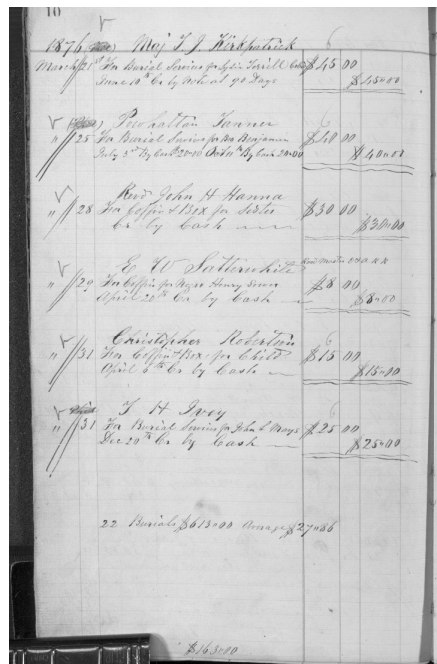 10
1876 Maj T. J. Kirkpatrick
March 25 For Burial Service for Lydia $45 00
June 10th Cr By Note at 90 Days $45"00
Powhattan Tanner
" 25 For Burial Service for Bro Benjamin $40 00
July 3rd By Cash 20"00 Oct 11th By Cash 20"00 $40"00
Revd John H Hanna
" 28 For Coffin & Box for Sister $30 00
Cr by Cash $30"00
E W Satterwhite Road Master
" 29 For Coffin for Negro Henry $8 00
April 20th Cr by Cash $8"00
Christopher Robertson
" 31 For Coffin & Box for Child $15 00
April 6th Cr by Cash $15"00
T H Ivey
" 31 For Burial Service for John L Mays $25 00
Dec 29th Cr by Cash $25"00
22 Burials $613"00 Average $27"86
$163"00